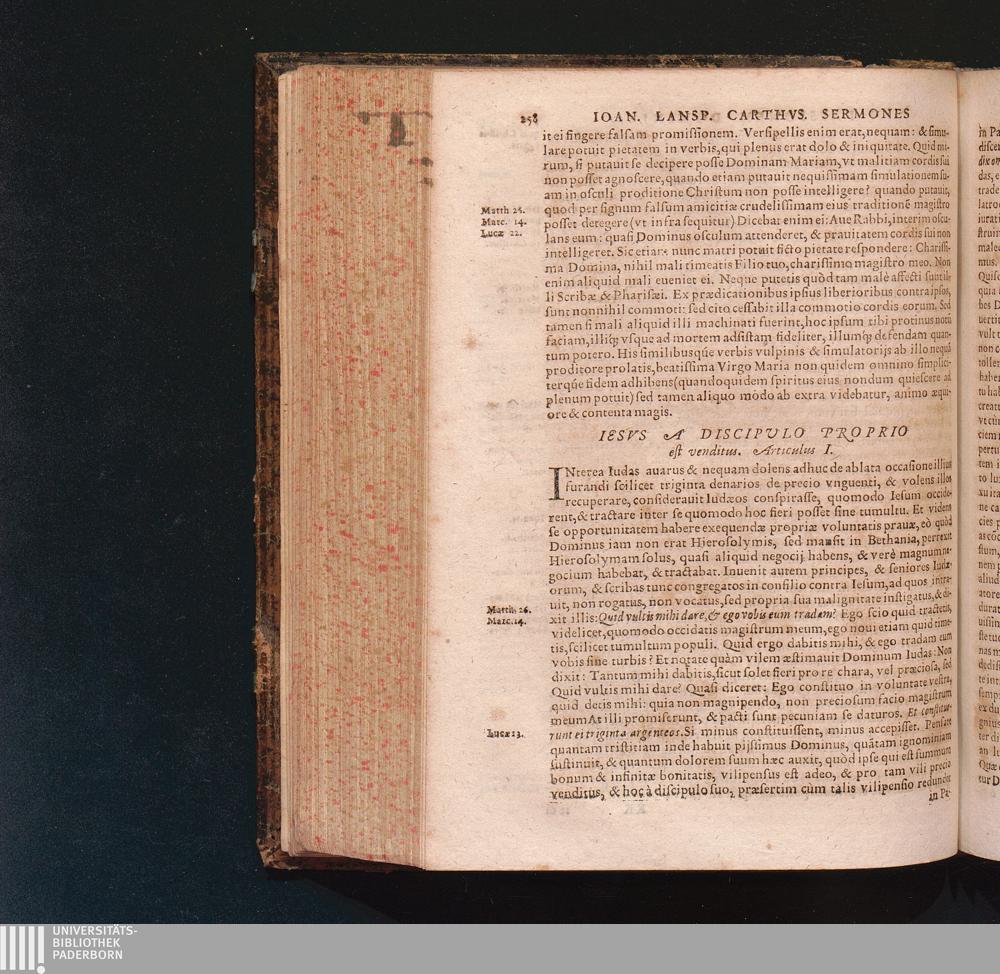 258 IOAN. LANSP. CARTHVS. SERMONES
it ei fingere falsam promissionem. Versipellis enim erat, nequam: & simu-
lare potuit pietatem in verbis, qui plenus erat dolo & iniquitate. Quid mi-
rum, si putauit se decipere posse Dominam Mariam, vt malitiam cordis sui
non posset agnoscere, quando etiam putauit nequissimam simulationem su-
am in osculi proditione Christum non posse intelligere? quando putauit,
quod per signum falsum amicitiæ crudelissimam eius traditionē magistro
posset detegere (vt infra sequitur) Dicebat enim ei: Aue Rabbi, interim oscu-
lans eum: quasi Dominus osculum attenderet, & prauitatem cordis sui non
intelligeret. Sic etiam nunc matri potuit ficto pietate respondere: Charissi-
ma Domina, nihil mali timeatis Filio tuo, charissimo magistro meo. Non
enim aliquid mali eueniet ei. Neque putetis quòd tam malè affecti sunt il-
li Scribæ & Pharisæi. Ex prædicationibus ipsius liberioribus contra ipsos,
sunt nonnihil commoti: sed cito cessabit illa commotio cordis eorum. Sed
tamen si mali aliquid illi machinati fuerint, hoc ipsum tibi protinus notū
faciam, illiq; vsque ad mortem adsistam fideliter, illumq; defendam quan-
tum potero. His similibusque verbis vulpinis & simulatorijs ab illo nequā
proditore prolatis, beatissima Virgo Maria non quidem omnino simplici-
terque fidem adhibens (quandoquidem spiritus eius nondum quiescere ad
plenum potuit) sed tamen aliquo modo ab extra videbatur, animo æqui-
ore & contenta magis.
Matth 26.
Marc. 14.
Lucæ 22.
IESVS A DISCIPVLO PROPRIO
est venditus. Articulus I.
INterea Iudas auarus & nequam dolens adhuc de ablata occasione illius
furandi scilicet triginta denarios de precio vnguenti, & volens illos
recuperare, considerauit Iudæos conspirasse, quomodo Iesum occide-
rent, & tractare inter se quomodo hoc fieri posset sine tumultu. Et videns
se opportunitatem habere exequendæ propriæ voluntatis prauæ, eò quòd
Dominus iam non erat Hierosolymis, sed mansit in Bethania, perrexit
Hierosolymam solus, quasi aliquid negocij habens, & verè magnum ne-
gocium habebat, & tractabat. Inuenit autem principes, & seniores Iudæ-
orum, & scribas tunc congregatos in consilio contra Iesum, ad quos intra-
uit, non rogatus, non vocatus, sed propria sua malignitate instigatus, & di-
xit illis: Quid vultis mihi dare, & ego vobis eum tradam? Ego scio quid tractetis,
videlicet, quomodo occidatis magistrum meum, ego noui etiam quid time-
tis, scilicet tumultum populi. Quid ergo dabitis mihi, & ego tradam eum
vobis sine turbis? Et notate quàm vilem æstimauit Dominum Iudas: Non
dixit: Tantum mihi dabitis, sicut solet fieri pro re chara, vel præciosa, sed
Quid vultis mihi dare? Quasi diceret: Ego constituo in voluntate vestra,
quid detis mihi: quia non magnipendo, non preciosum facio magistrum
meum At illi promiserunt, & pacti sunt pecuniam se daturos. Et constitue-
runt ei triginta argenteos. Si minus constituissent, minus accepisset. Pensate
quantam tristitiam inde habuit pijssimus Dominus, quātam ignominiam
sustinuit, & quantum dolorem suum hæc auxit, quòd ipse qui est summum
bonum & infinitæ bonitatis, vilipensus est adeo, & pro tam vili precio
venditus, & hoc à discipulo suo, præsertim cùm talis vilipensio redundet
in Pa-
Matth. 26.
Marc. 14.
Lucæ 23.
UNIVERSITÄTS-
BIBLIOTHEK
PADERBORN